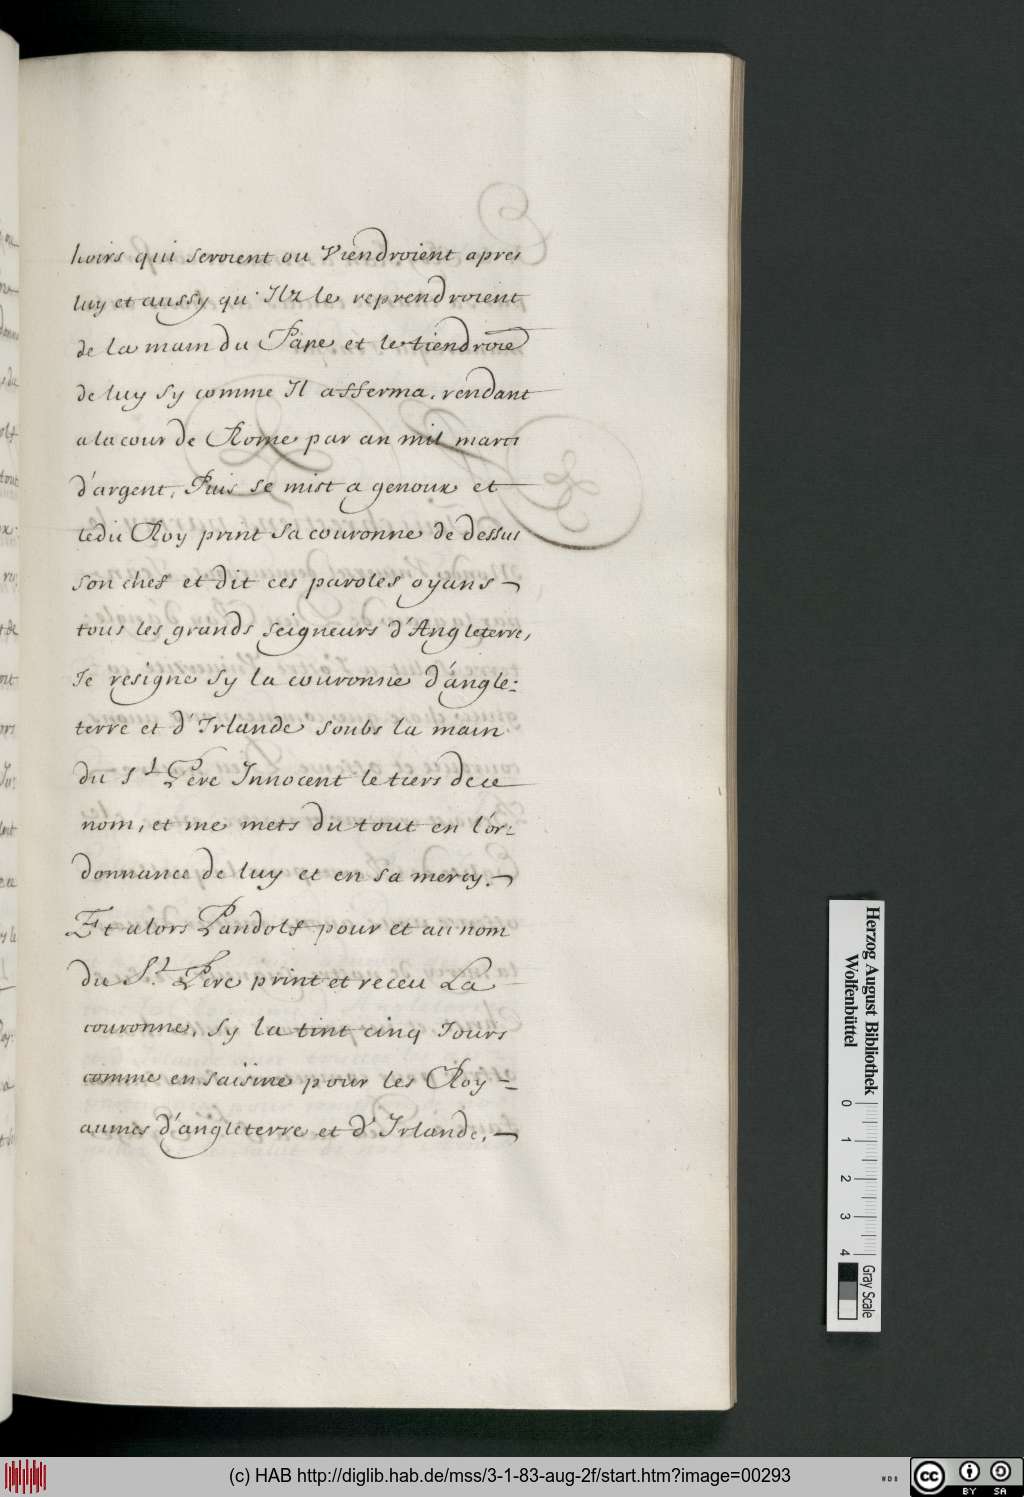 hoirs qui seroient ou Viendroient apres
luy et aussy qu' Ilz le reprendroient
de la main du Pape et le tiendroiẽ
de luy sy comme Il afferma. rendant
a la cour de Rome par an mil marcs
d'argent, Puis se mist a genoux et
ledit Roy print sa couronne de dessus
son chef et dit ces paroles oyans
tous les grands seigneurs d'Angleterre,
Je resigne sy la couronne d'ángle-
terre et d'Irlande soubs la main
du St. Pere Innocent le tiers de ce
nom, et me mets du tout en l'or-
donnance de luy et en sa mercy.
Et alors Pandolf pour et au nom
du St. Pere print et receu La
couronne, sy la tint cinq Jours
comme en saisine pour les Roy-
aumes d'angleterre et d'Irlande.
Herzog August Bibliothek
Wolfenbüttel
0 1 2 3 4
Gray Scale
(c) HAB http://diglib.hab.de/mss/3-1-83-aug-2f/start.htm?image=00293
cc BY SA